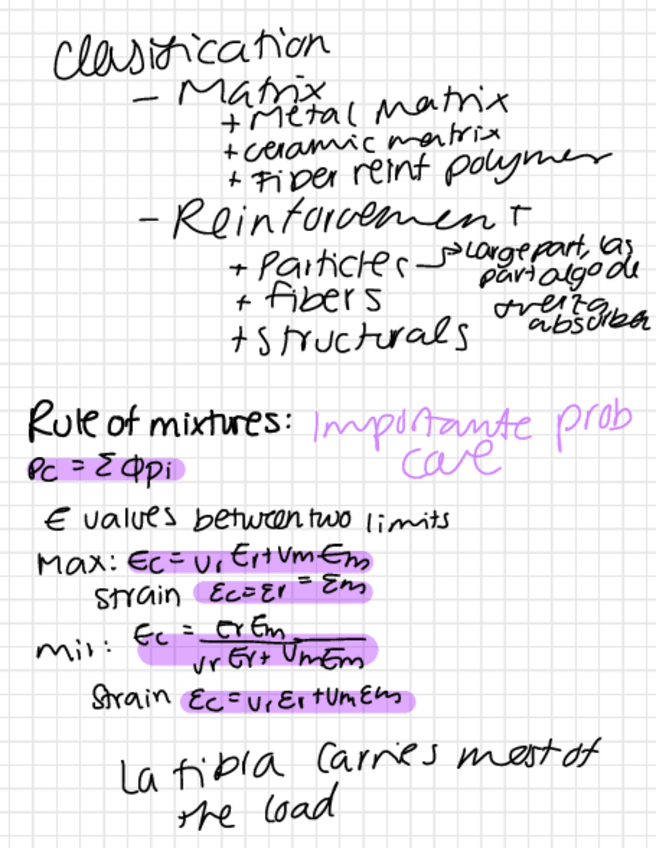 Clasification
- Matrix
+ Metal Matrix
+ ceramic matrix
+ Fiber reinf polymer
- Reinforcement
+ Particles → Large part, las
part algo de
fuerza
absorben
+ fibers
+ structurals
Rule of mixtures: Importante prob
cae
Pc = Σ Φpi
E values between two limits
Max: Ec = Vr Er + Vm Em
strain εc = εr = εm
min: Ec = Er Em / Vr Er + Vm Em
Strain εc = Vr εr + Vm εm
La fibra carries most of
the load